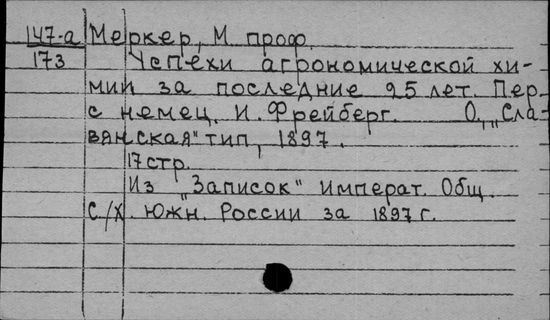 147-а Меркер, М. проф.
173 Успехи агрономической хи-
мии за последние 25 лет. Пер.
с немец. И. Фрейберг. О., „Сла-
вянская" тип., 1897.
17 стр.
Из „Записок" Императ. Общ.
С/Х. южн. России за 1897 г.